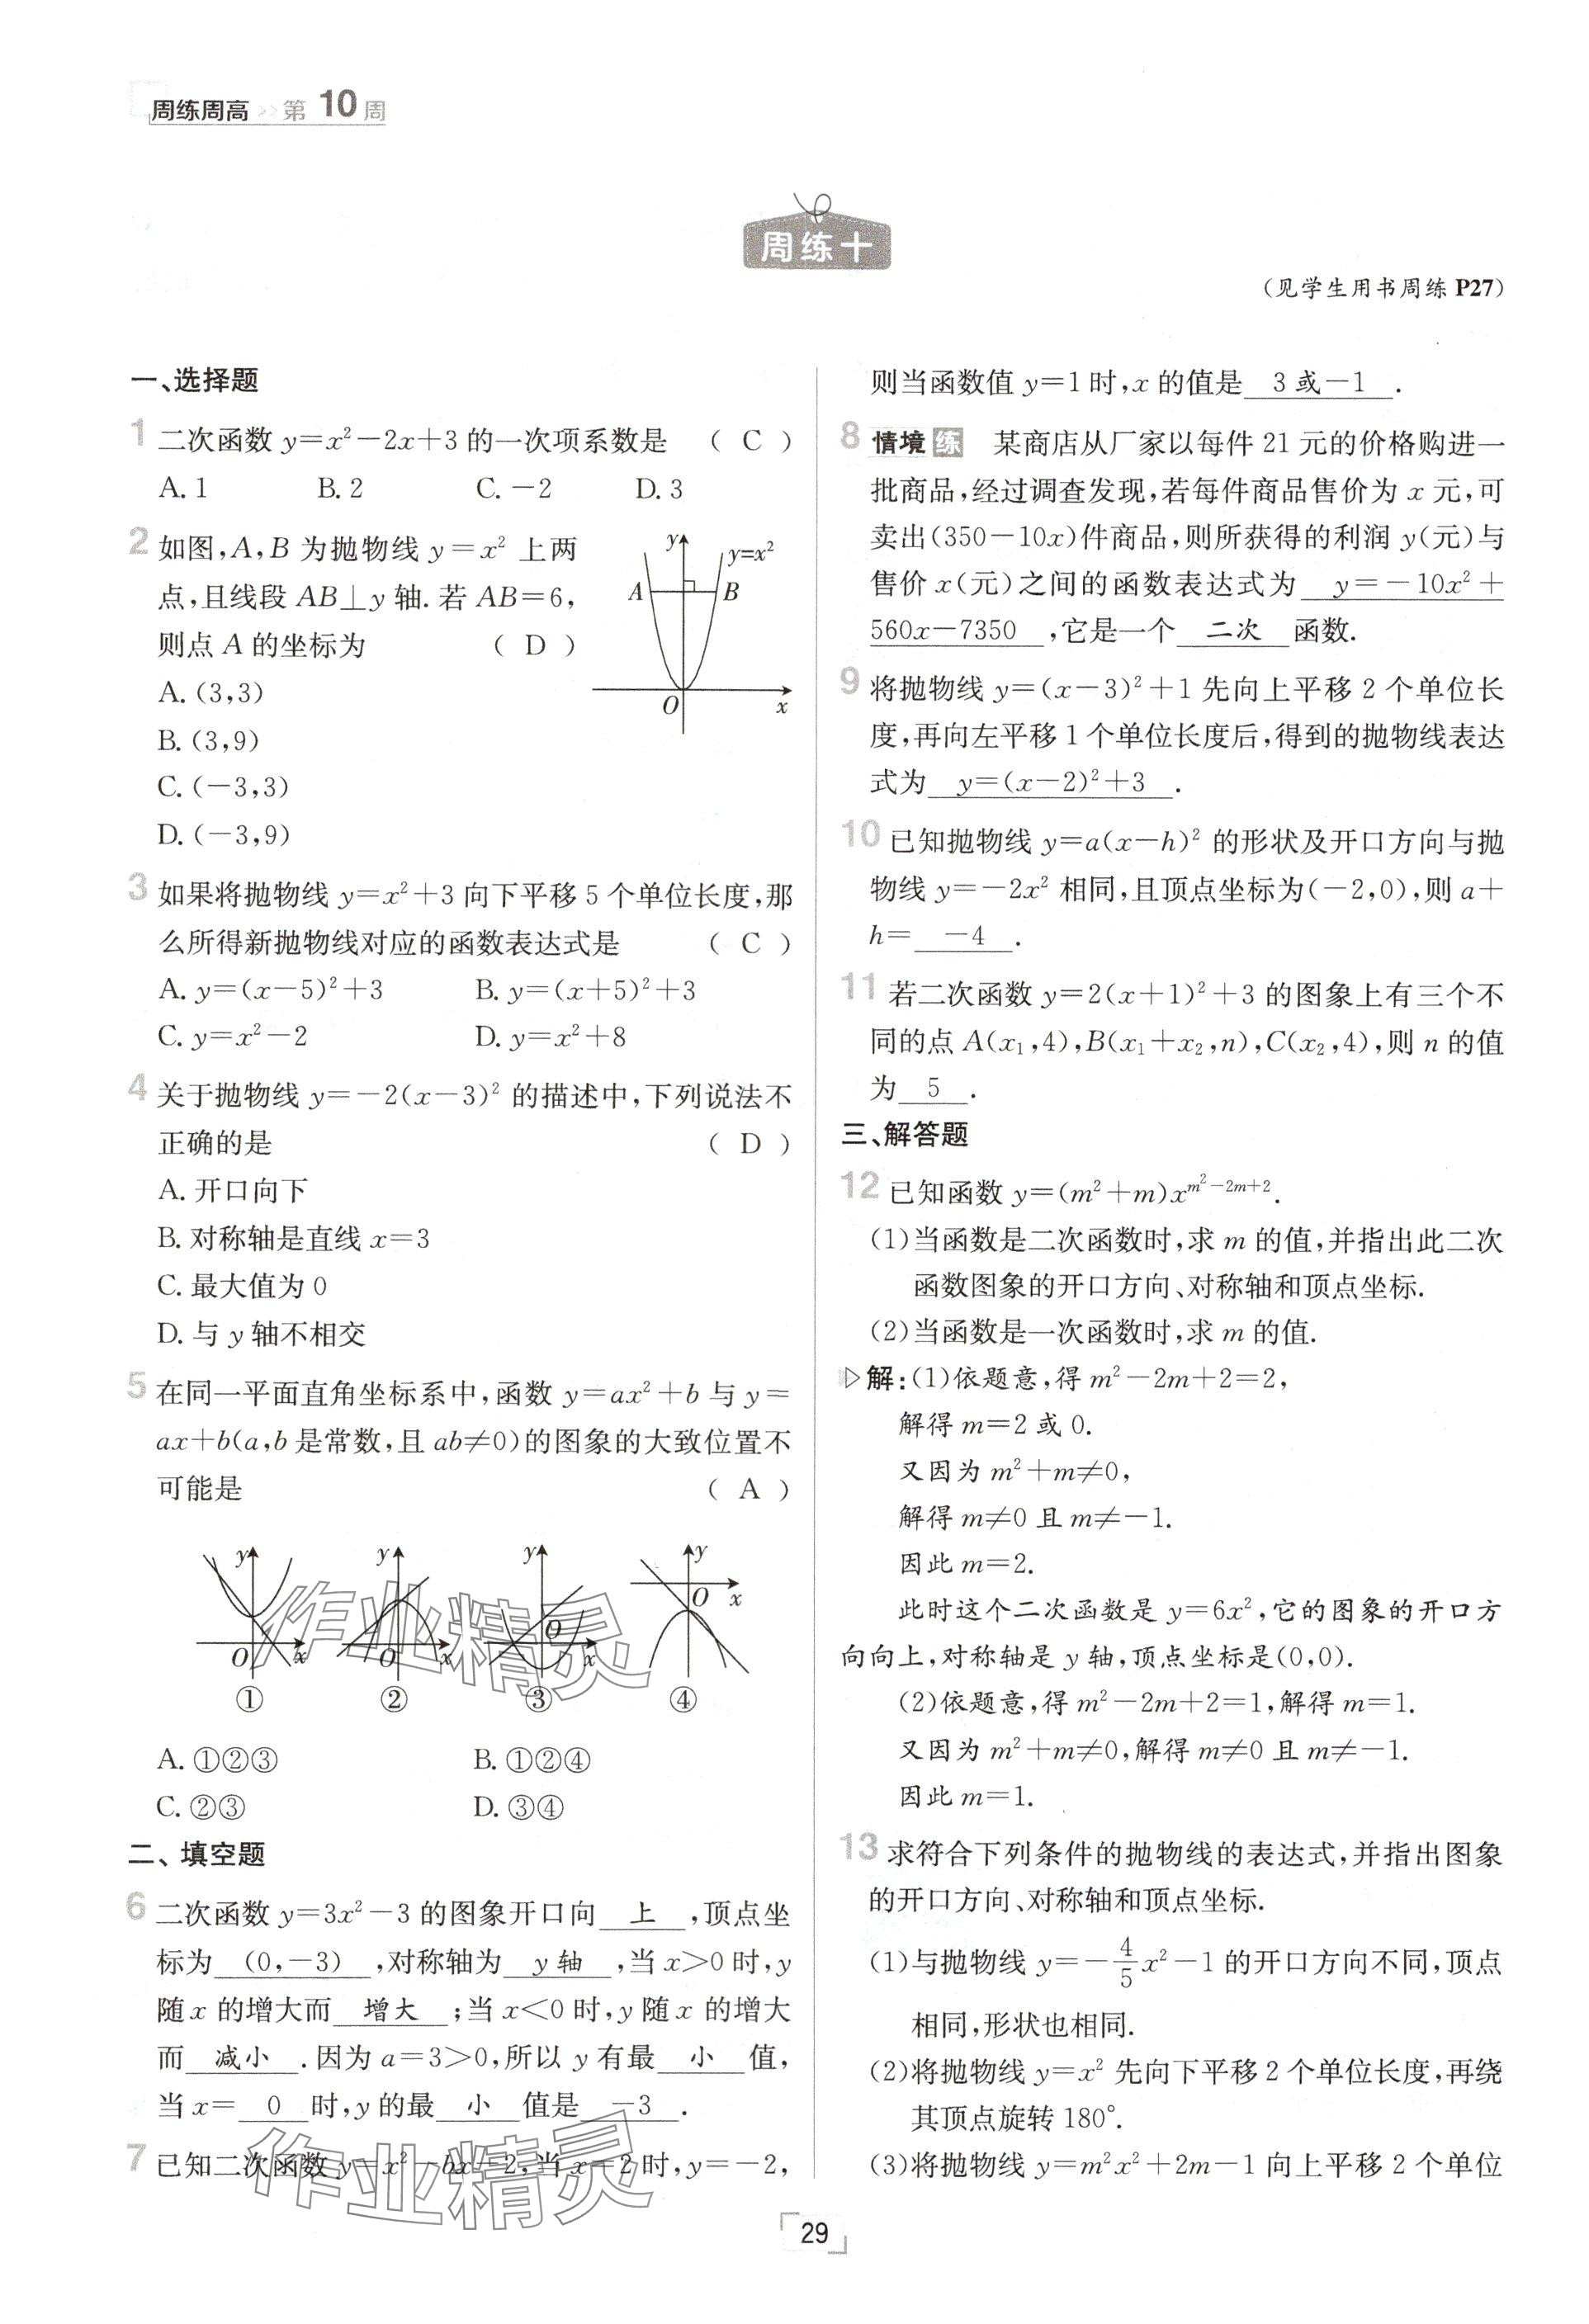 周练周高 >> 第 10 周
周练十
(见学生用书周练 P27)
一、选择题
1 二次函数 y=x²-2x+3 的一次项系数是 ( C )
A. 1 B. 2 C. -2 D. 3
2 如图,A,B 为抛物线 y=x² 上两
点,且线段 AB⊥y 轴. 若 AB=6,
则点 A 的坐标为 ( D )
A. (3,3)
B. (3,9)
C. (-3,3)
D. (-3,9)
y
y=x²
A
B
O
x
3 如果将抛物线 y=x²+3 向下平移 5 个单位长度,那
么所得新抛物线对应的函数表达式是 ( C )
A. y=(x-5)²+3 B. y=(x+5)²+3
C. y=x²-2 D. y=x²+8
4 关于抛物线 y=-2(x-3)² 的描述中,下列说法不
正确的是 ( D )
A. 开口向下
B. 对称轴是直线 x=3
C. 最大值为 0
D. 与 y 轴不相交
5 在同一平面直角坐标系中,函数 y=ax²+b 与 y=
ax+b(a,b 是常数,且 ab≠0)的图象的大致位置不
可能是 ( A )
y y y y
O x O x O x O x
① ② ③ ④
作业精灵
A. ①②③ B. ①②④
C. ②③ D. ③④
二、填空题
6 二次函数 y=3x²-3 的图象开口向 上 ,顶点坐
标为 (0,-3) ,对称轴为 y 轴 ,当 x>0 时,y
随 x 的增大而 增大 ;当 x<0 时,y 随 x 的增大
而 减小 .因为 a=3>0,所以 y 有最 小 值,
当 x= 0 时,y 的最 小 值是 -3 .
7 已知二次函数 y=x²-bx-2,当 x=2 时,y=-2,
作业精灵
则当函数值 y=1 时,x 的值是 3 或-1 .
8 情境 练 某商店从厂家以每件 21 元的价格购进一
批商品,经过调查发现,若每件商品售价为 x 元,可
卖出(350-10x)件商品,则所获得的利润 y(元)与
售价 x(元)之间的函数表达式为 y=-10x²+
560x-7350 ,它是一个 二次 函数.
9 将抛物线 y=(x-3)²+1 先向上平移 2 个单位长
度,再向左平移 1 个单位长度后,得到的抛物线表达
式为 y=(x-2)²+3 .
10 已知抛物线 y=a(x-h)² 的形状及开口方向与抛
物线 y=-2x² 相同,且顶点坐标为(-2,0),则 a+
h= -4 .
11 若二次函数 y=2(x+1)²+3 的图象上有三个不
同的点 A(x₁,4),B(x₁+x₂,n),C(x₂,4),则 n 的值
为 5 .
三、解答题
12 已知函数 y=(m²+m)x^{m²-2m+2}.
(1)当函数是二次函数时,求 m 的值,并指出此二次
函数图象的开口方向、对称轴和顶点坐标.
(2)当函数是一次函数时,求 m 的值.
▷解:(1)依题意,得 m²-2m+2=2,
解得 m=2 或 0.
又因为 m²+m≠0,
解得 m≠0 且 m≠-1.
因此 m=2.
此时这个二次函数是 y=6x²,它的图象的开口方
向向上,对称轴是 y 轴,顶点坐标是(0,0).
(2)依题意,得 m²-2m+2=1,解得 m=1.
又因为 m²+m≠0,解得 m≠0 且 m≠-1.
因此 m=1.
13 求符合下列条件的抛物线的表达式,并指出图象
的开口方向、对称轴和顶点坐标.
(1)与抛物线 y=-4/5x²-1 的开口方向不同,顶点
相同,形状也相同.
(2)将抛物线 y=x² 先向下平移 2 个单位长度,再绕
其顶点旋转 180°.
(3)将抛物线 y=m²x²+2m-1 向上平移 2 个单位
29